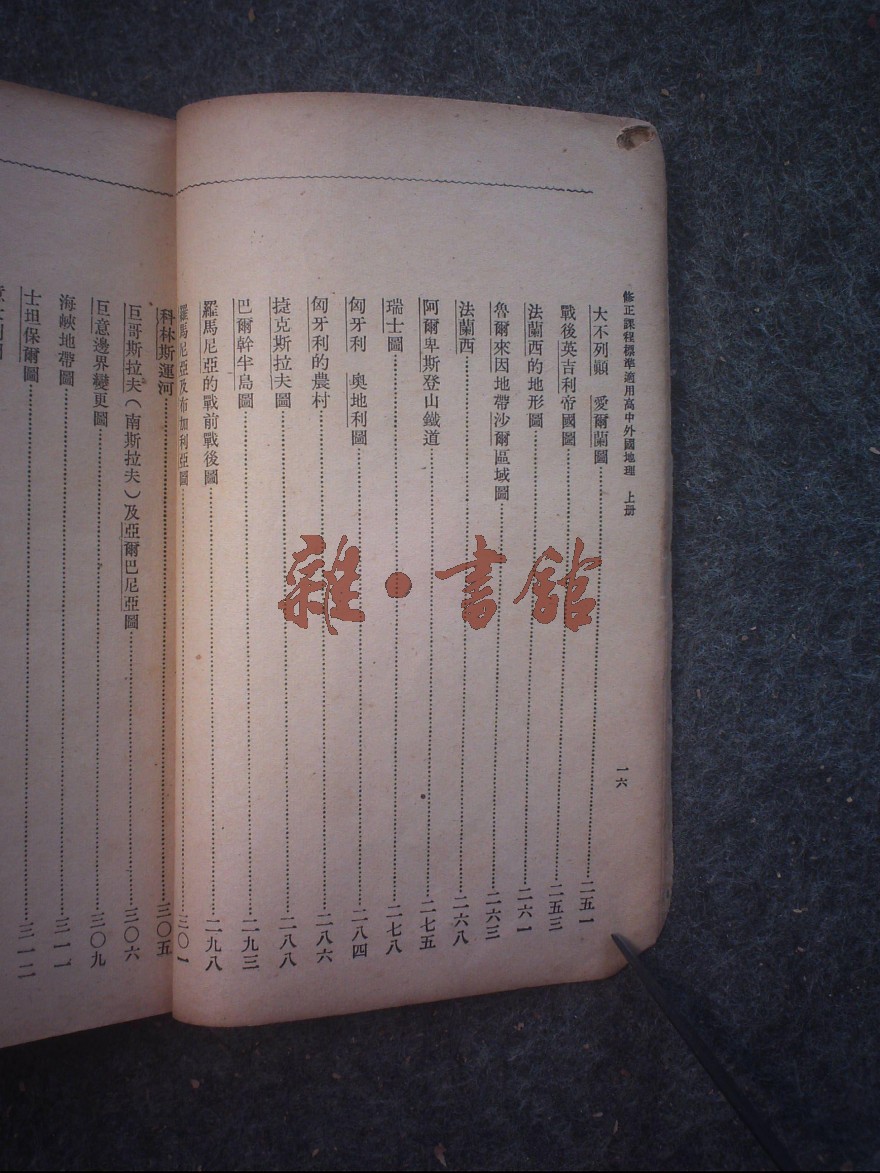 修正課程標準適用高中外國地理　上册
一六
大不列顚　愛爾蘭圖……二五一
戰後英吉利帝國圖……二五三
法蘭西的地形圖……二六一
魯爾來因地帶沙爾區域圖……二六三
法蘭西……二六八
阿爾卑斯登山鐵道……二七五
瑞士圖……二七八
匈牙利　奧地利圖……二八四
匈牙利的農村……二八六
捷克斯拉夫圖……二八八
巴爾幹半島圖……二九三
羅馬尼亞的戰前戰後圖……二九八
羅馬尼亞及布加利亞圖……三〇一
科林斯運河……三〇五
巨哥斯拉夫（南斯拉夫）及亞爾巴尼亞圖……三〇六
巨意邊界變更圖……三〇九
海峽地帶圖……三一一
士坦保爾圖……三一二
雜·書館